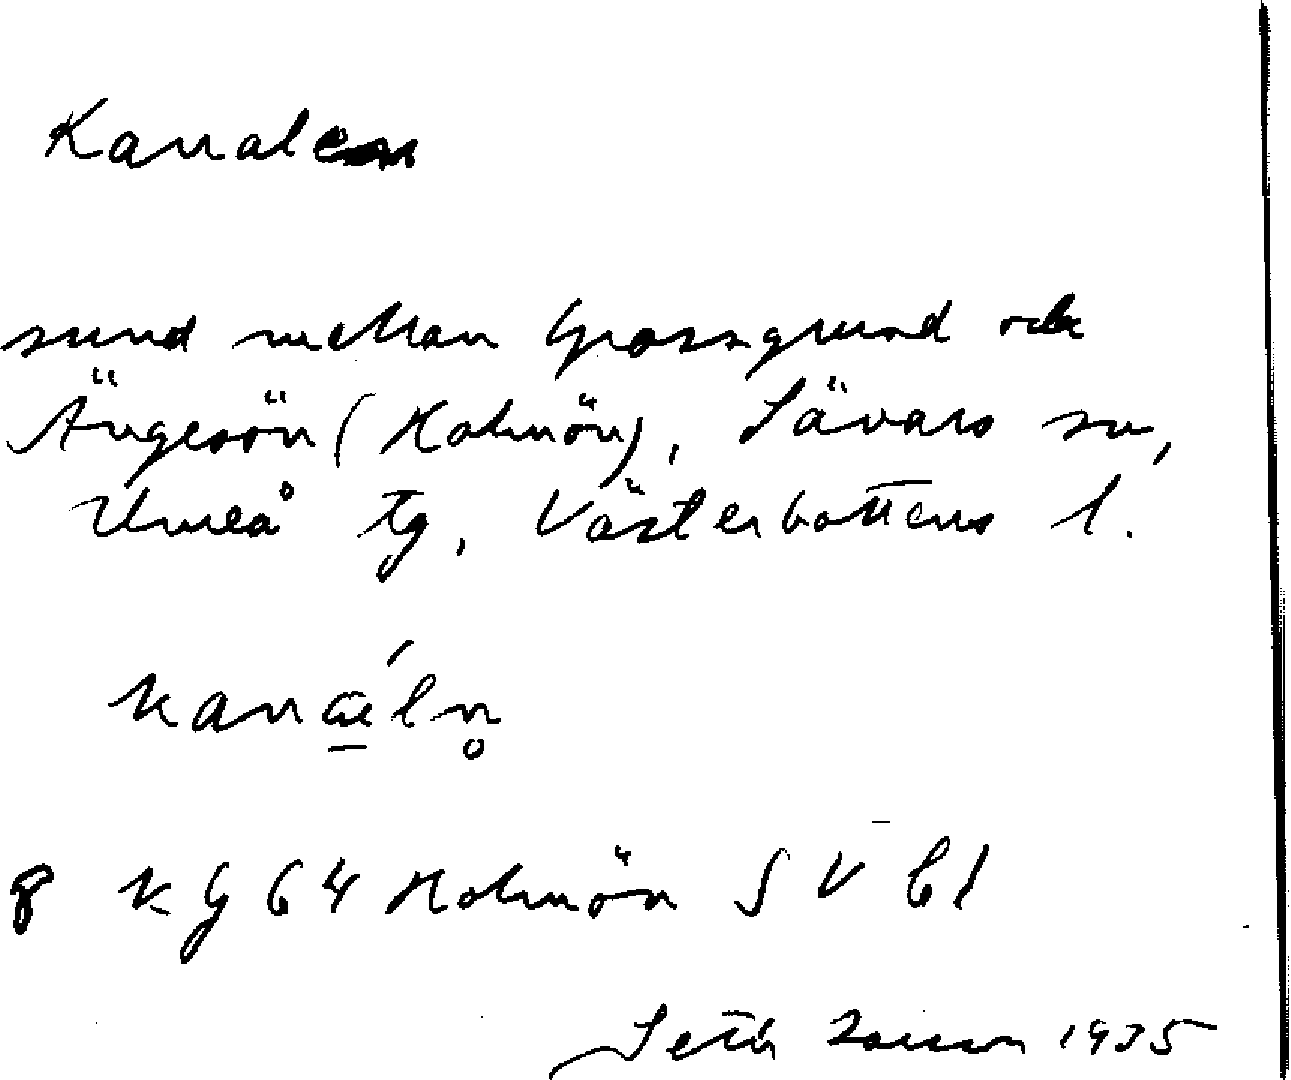 Kanalen
sund mellan Grossgrund och
Ängesön (Holmön), Sävars sn,
Umeå tg, Västerbottens l.
kanǽln̥
KG 64 Holmön SV bl
Seth 1935